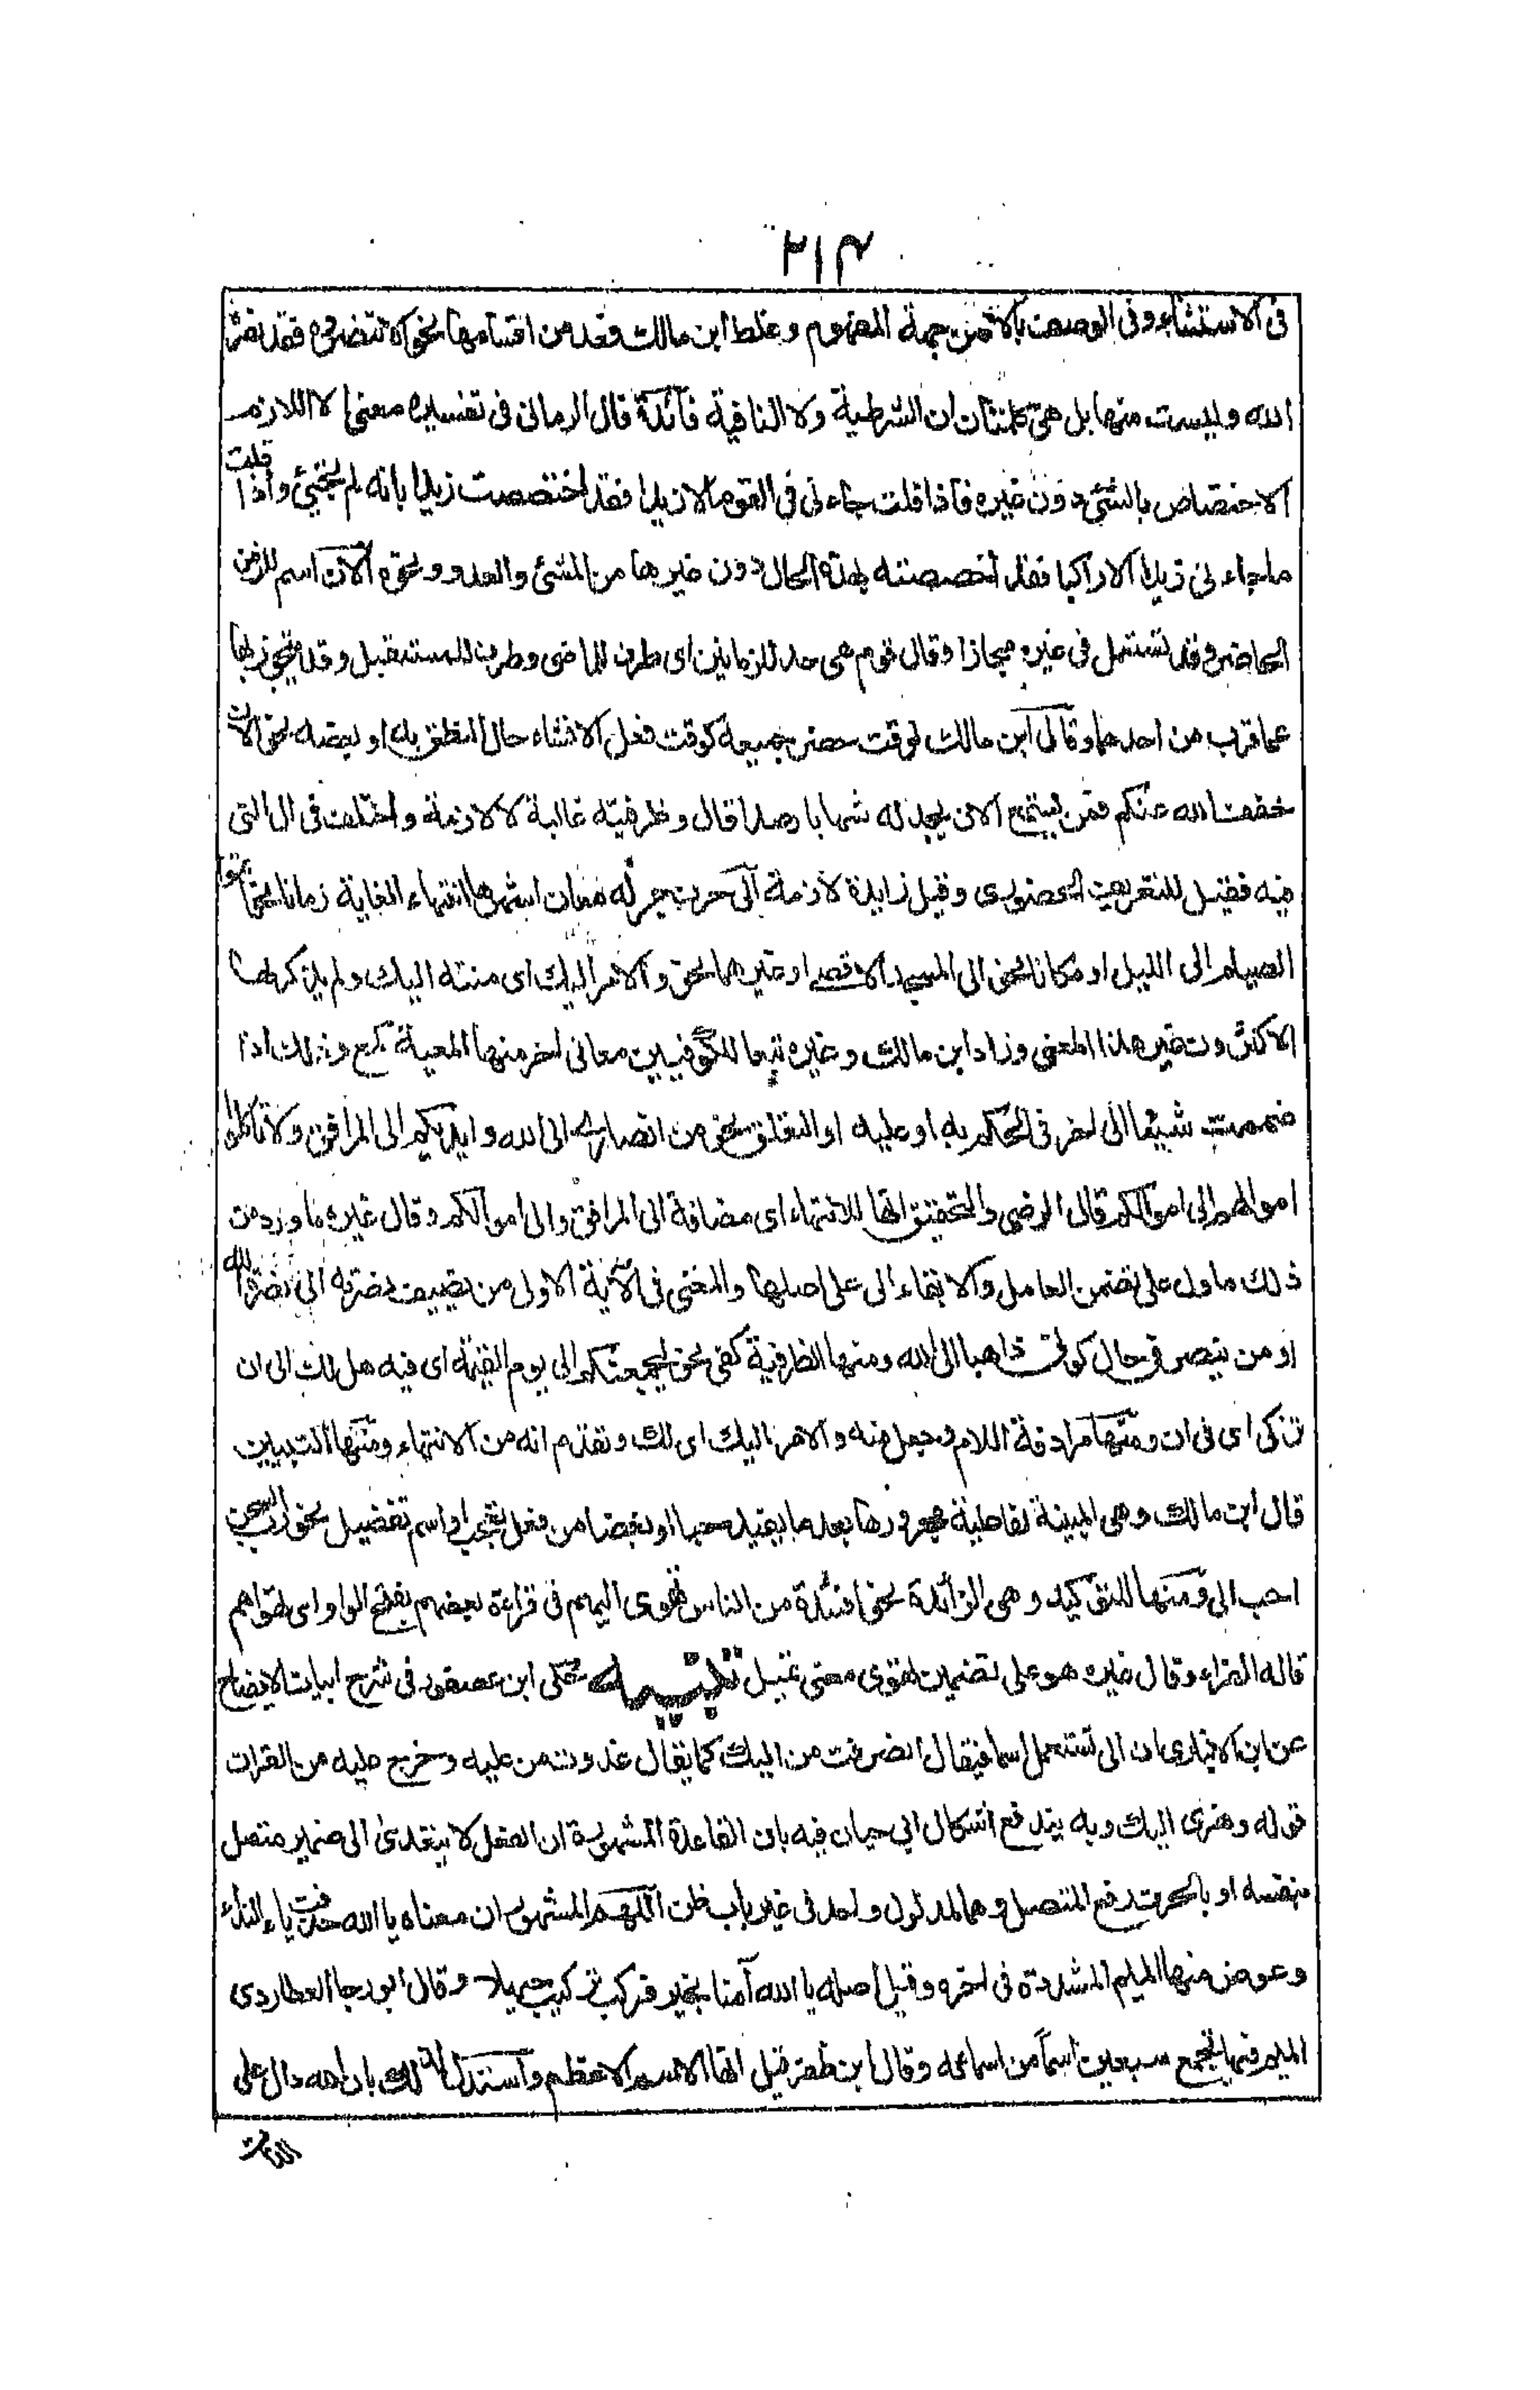 ٢١٣
فى الاستثناء وفى الوصف بالا من جهة المفهوم وغلط ابن مالك فعد من اقسامها نحو الا تنصروه فقد نصره
الله وليست منها بل هى كلمتان ان الشرطية ولا النافية فائدة قال الرمانى فى تفسيره معنى الا اللازم
الاختصاص بالشئ دون غيره فاذا قلت جاءنى القوم الا زيدا فقد اختصصت زيدا بانه لم يجئ واذا قلت
ما جاءنى زيد الا راكبا فقد اختصصته بهذه الحال دون غيرها من المشى والعدو ونحوه الآن اسم للزمن
الحاضر وقد تستعمل فى غيره مجازا وقال قوم هى حد للزمانين اى ظرف للماضى وظرف للمستقبل وقد يتجوز بها
عما قرب من احدهما وقال ابن مالك لوقت حضر جميعه كوقت فعل الانشاء حال النطق به او بعضه نحو الان
خفف الله عنكم فمن يستمع الان يجد له شهابا رصدا قال وظرفيته غالبة لا لازمة واختلف فى ال التى
فيه فقيل للتعريف الحضورى وقيل زايدة لازمة الى حرف جر له معان اشهرها انتهاء الغاية زمانا نحو اتموا
الصيام الى الليل او مكانا نحو الى المسجد الاقصى او غيرهما نحو والامر اليك اى منته اليك ولم يذكر لها
الاكثرون غير هذا المعنى وزاد ابن مالك وغيره تبعا للكوفيين معانى اخر منها المعية كمع وذلك اذا
ضممت شيئا الى اخر فى الحكم به او عليه او التعلق نحو من انصارى الى الله وايديكم الى المرافق ولا تاكلوا
اموالهم الى اموالكم قال الرضى والتحقيق انها للانتهاء اى مضافة الى المرافق والى اموالكم وقال غيره ما ورد من
ذلك ماول على تضمن العامل والابقاء الى على اصلها والمعنى فى الآية الاولى من يضيف نصرته الى نصرة الله
او من ينصرنى حال كونى ذاهبا الى الله ومنها الظرفية كفى نحو ليجمعنكم الى يوم القيمة اى فيه هل لك الى ان
تزكى اى فى ان ومنها مرادفة اللام وجعل منه والامر اليك اى لك وتقدم انه من الانتهاء ومنها التبيين
قال ابن مالك وهى المبينة لفاعلية مجرورها بعد ما يفيد حبا او بغضا من فعل تعجب او اسم تفضيل نحو رب السجن
احب الى ومنها التوكيد وهى الزائدة نحو افئدة من الناس تهوى اليهم فى قراءة بعضهم بفتح الواو اى تهواهم
قاله الفراء وقال غيره هو على تضمين تهوى معنى تميل تنبيه حكى ابن عصفور فى شرح ابيات الايضاح
عن ابن الانبارى ان الى تستعمل اسما فيقال انصرفت من اليك كما يقال غدوت من عليه وخرج عليه من القرات
قوله وهزى اليك وبه يندفع اشكال ابى حيان فيه بان القاعدة المشهورة ان الفعل لا يتعدى الى ضمير متصل
بنفسه او بالحرف رفع المتصل وهما لمدلول واحد فى غير باب ظن اللهم المشهور ان معناه يا الله حذفت ياء النداء
وعوض منها الميم المشددة فى اخره وقيل اصله يا الله آمنا بخير فركب تركيب حيهلا وقال ابو رجا العطاردى
الميم فيها تجمع سبعين اسماً من اسمائه وقال ابن ظفر قيل انها الاسم الاعظم واستدل لذلك بان الله دال على
الذات